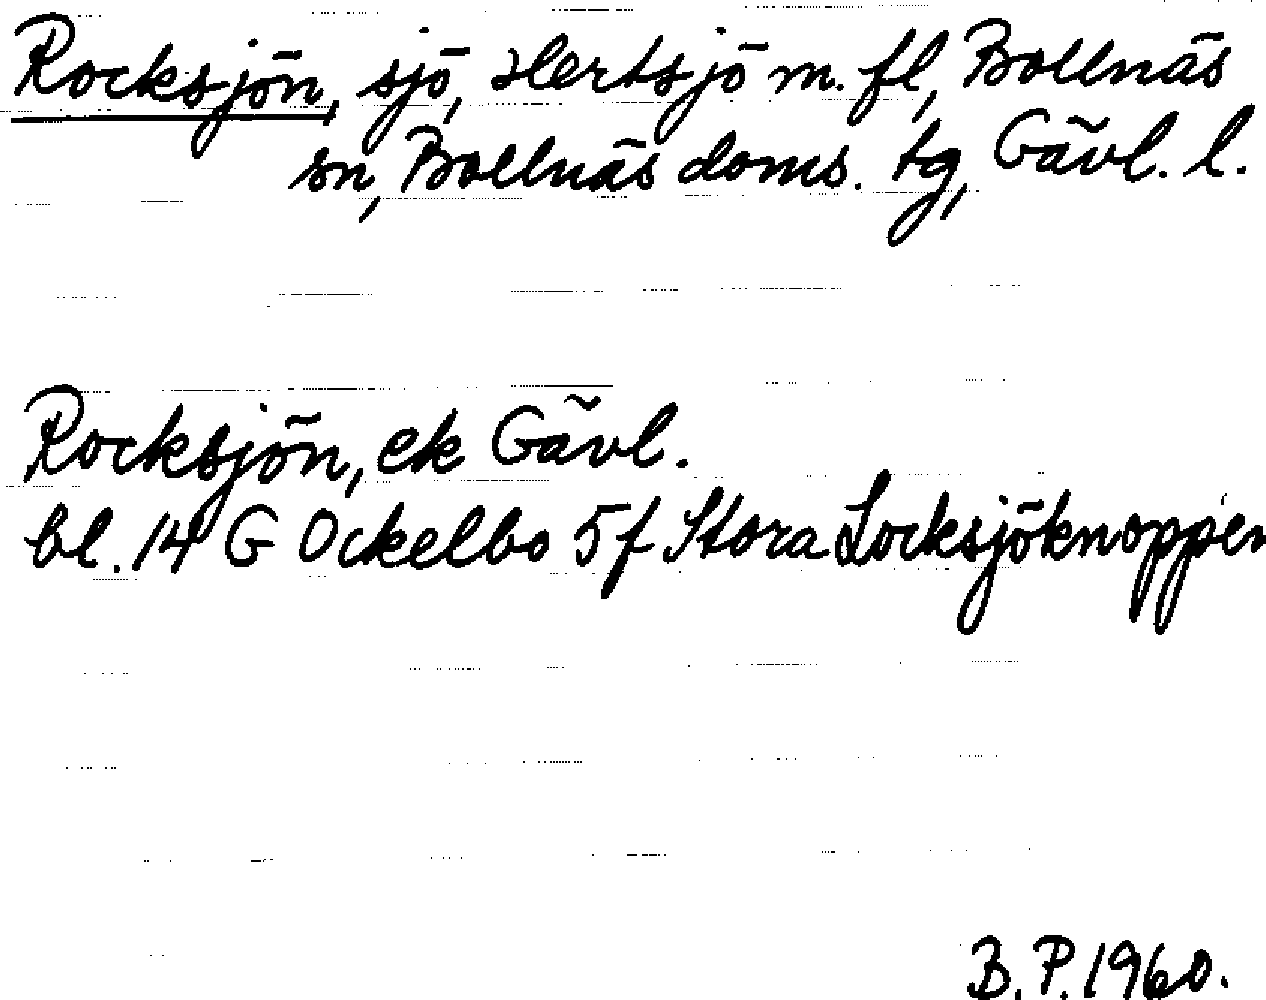 Rocksjön, sjö, Hertsjö m. fl, Bollnäs
sn, Bollnäs doms. tg, Gävl. l.
Rocksjön, ek Gävl.
bl. 14 G Ockelbo 5f Stora Locksjöknoppen
B. P. 1960.